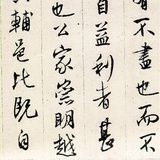 有不盡也而不
自益利者甚
也公家崇明越
輔邑比既自